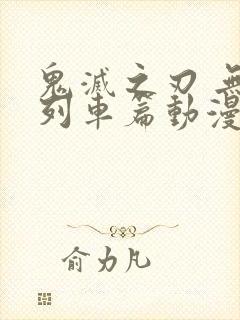 鬼滅之刃 無
列車篇動漫
俞力凡